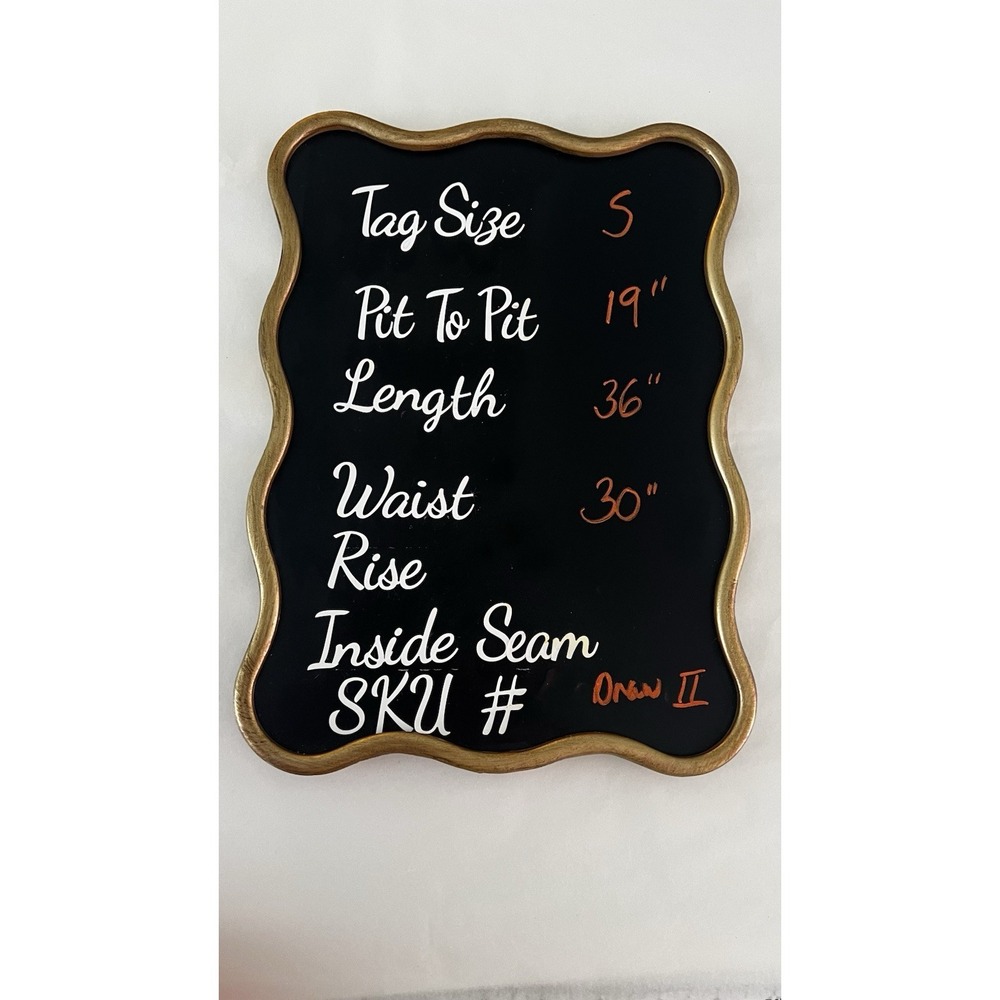 Tag Size S
Pit To Pit 19"
Length 36"
Waist 30"
Rise
Inside Seam
SKU # Draw II